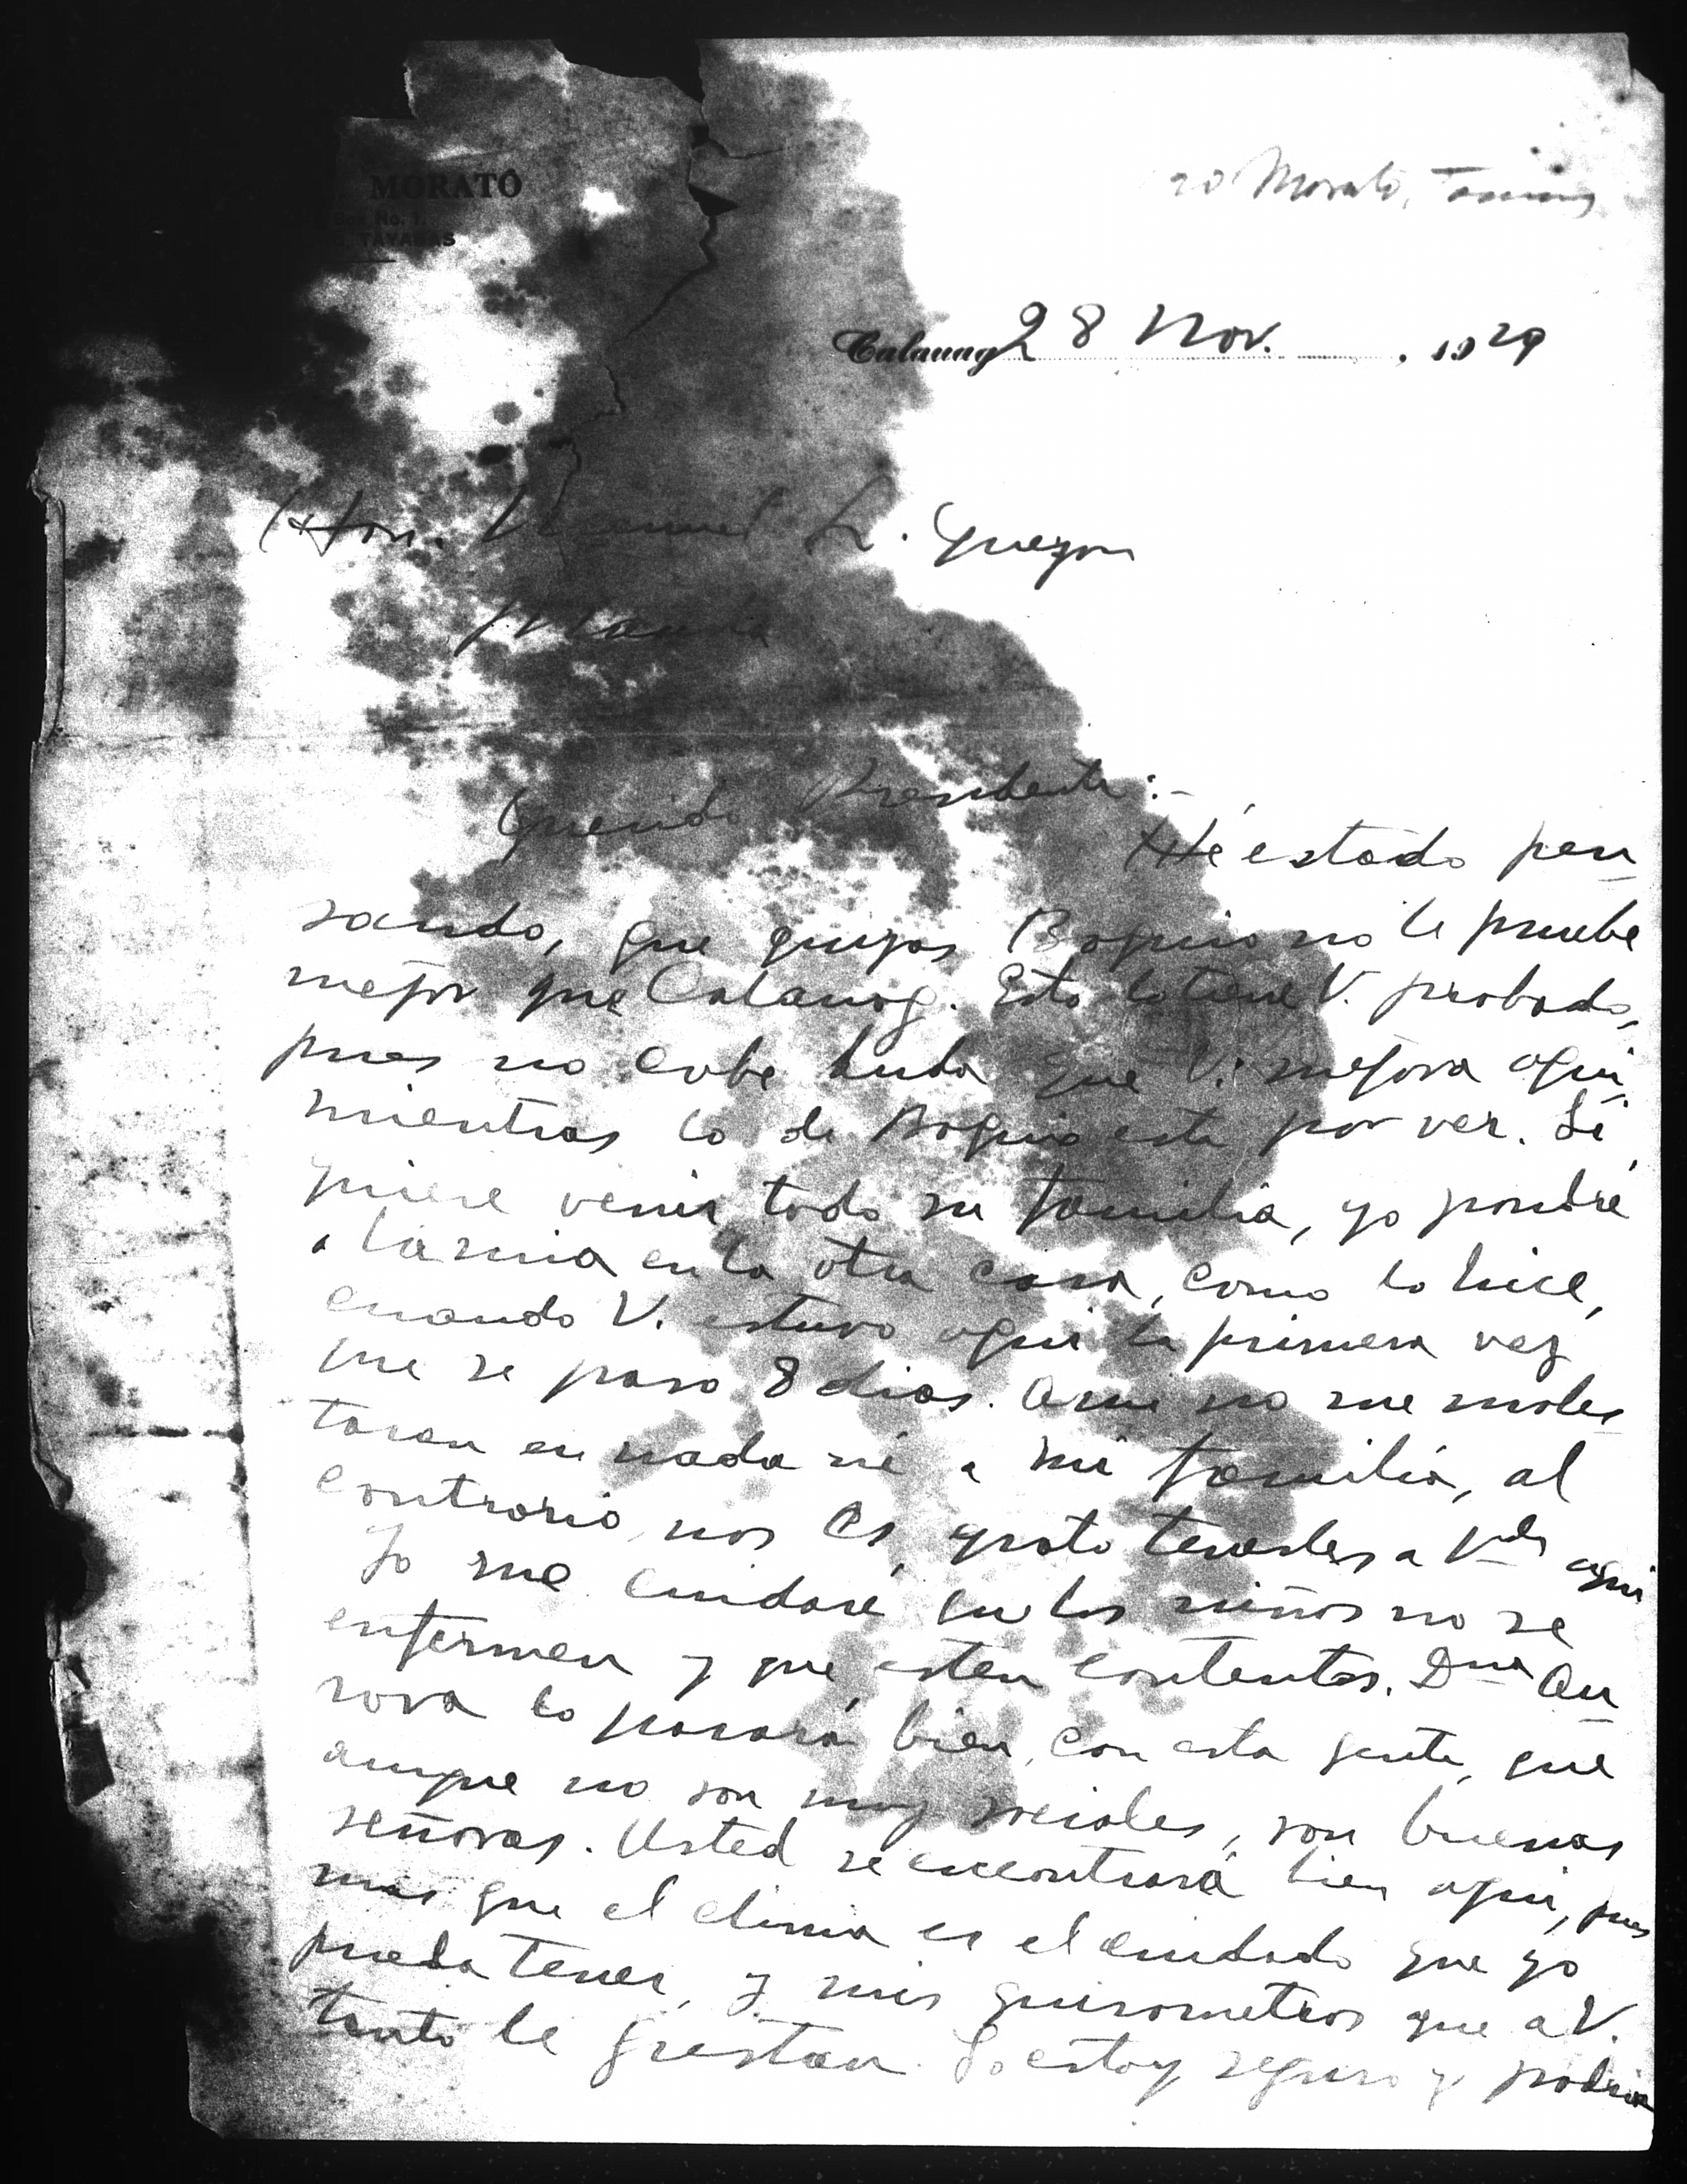 MORATÓ
Box No. 1.
TAYABAS
Morato, Tomas
Calauag 28 Nov. , 1929
Hon. Manuel L. Quezon
Manila
Querido Presidente:-
Hé estado pen
sando, que quizas Baguio no le pruebe
mejor que Calauag. Esto lo tiene V. probado,
pues no cabe duda que V. mejora aqui
mientras lo de Baguio esta por ver. Si
quiere venir toda su familia, yo pondré
a la mia en la otra casa, como lo hice,
cuando V. estuvo aqui la primera vez
que se paso 8 dias. A mi no me moles
taran en nada ni a mi familia, al
contrario, nos es grato tenerles a Vdes aqui
Yo me cuidaré que los niños no se
enfermen y que esten contentos. Dna Au
rora lo pasará bien, con esta gente, que
aunque no son muy sociales, son buenas
señoras. Usted se encontrará bien aqui, pues
mas que el clima es el cuidado que yo
pueda tener, y mis quirometros que a V.
tanto le gustan. Yo estoy seguro y podria